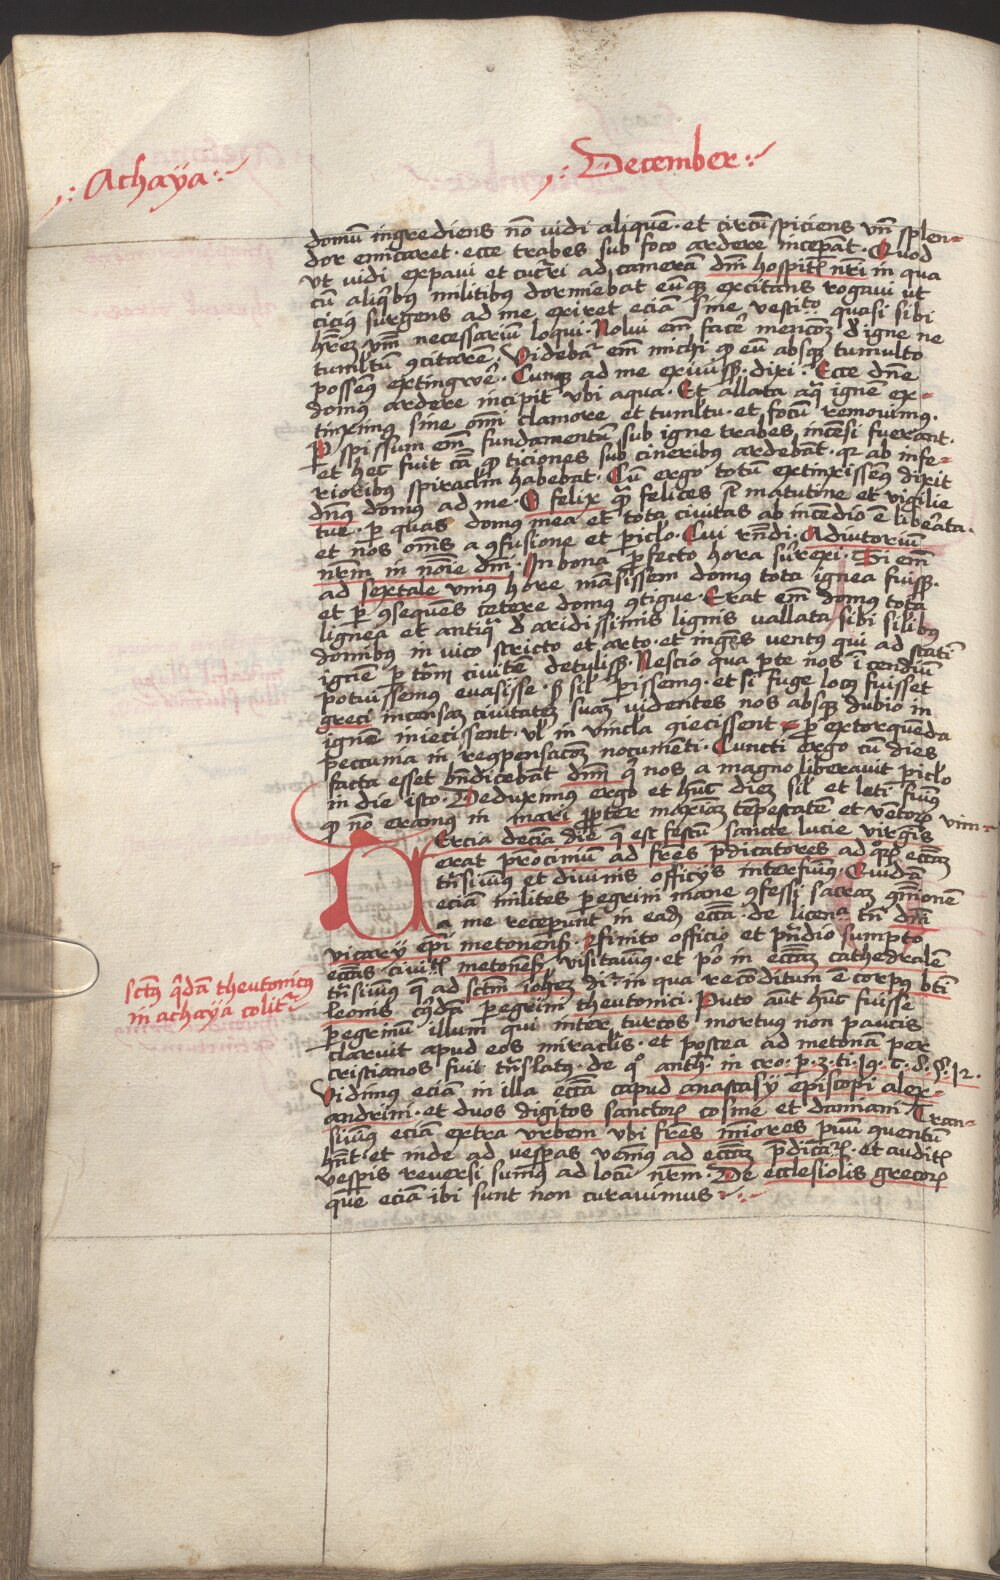 Achaÿa
December
domū ingrediens nō vidi aliquē · et circūspiciens vn̄ splen-
dor emicaret · ecce trabes sub foco ardere incepāt · Quod
vt vidi expavi et cucr̄ri ad camerā dn̄i hospit̄ nr̄i in qua
cū aliqbus militibus dormiebat eūq; excitans rogavi ut
cicius surgens ad me exiret eciā sine vestito quasi sibi
necessariū loqui · Nolui em̄ facē mencōē d igne ne
tumltum 9citarē · Videbar em̄ michi qp eū absq; tumulto
possem extingwē · Cunq; ad me exivissz · dixi · Ecce dn̄e
domus ardere incipit vbi aqua · Et allata aqa ignē ex-
tinximus sine omi clamore et tumltu · et focū removimus ·
spissum em̄ fundamentū sub igne trabes incēsi fuerant ·
et hec fuit cā qp ticiones sub cineribus ardebāt · qr ab infe-
rioribus spiraclm habebat · Cū ergo totū extinxissem dixit
dn̄us domus ad me · O felix qm felices st matutine et vigilie
tue · p quas domus mea et tota civitas ab incēdio ē libērata ·
et nos om̄s a 9fusione et piclo · Cui rn̄di · Adiutoriū
nr̄m in noīe dn̄i · In bona pfecto hora surrexi · Si em̄
ad sextale unius hore māsissem domus tota ignea fuissz ·
et p 9sequēs cetere domus 9tigue · Erat em̄ domus tota
lignea et antiqa d aridissimis lignis vallata sibi silibus
domibus in vico stricto et arto · et ingēs ventus qui ad statī
ignē p totā civitē detulissz · Nescio qua pte nos īcendiū
potuissemus evasisse · s sil pissemus · et si fuge locus fuisset
greci incensaz civitatez suaz videntes nos absq; dubio in
ignē iniecissent · vl in vincla 9iecissent p extorquēda
peccunia in recpensacōem nocumēti · Cuncti ergo cū dies
facta esset bn̄dicebāt dm̄ q nos a magno liberavit piclo
in die isto · Deduximus ergo et hūc diez sil et leti fuimus
qp nō eramus in mari ppter maxiaz tēpestatē et vētorū
Tercia decia die q est festū sancte lucie virgis
erat procimum ad frēs pdicatores ad qrd eccām
trāsivimus et divinis officys interfuimus · Quidā
eciā milites peregrini mane 9fessi sacraz 9mōionē
a me receperunt in eadē eccā · de licen tn̄ dn̄i
vicarÿ epī metonens · Finito officio et prādio sumpto
eccās civitatis metonēs visitavimus · et po in eccām cathedralē
trāsivimus q ad sctm iohez dr · in qua reconditum ē corpus bti
leonis cuidā pegrini theutonici · Puto aut hūc fuisse
pegrinū illum qui inter turcos mortuus non paucis
claruit apud eos miraclis · et postea ad metonā per
cristianos fuit trāslatus · de qo anth in cro · p · 3 · ti · 19 · c · 8 · § · 12 ·
Vidimus eciā in illa eccā capud anastasÿ episcopi alex-
andrini · et duos digitos sanctorū cosme et damiani · Tran-
sivimus eciā extra urbem vbi frēs miores pvuū 9uentū
hn̄t · et inde ad vesperas venimus ad eccām pdicatorū · et auditis
vesperis reversi sumus ad locū nr̄m · De ecclesiolis grecorū
que eciā ibi sunt non curavimus
sctus qdā theutonicus
in achaÿa colitr